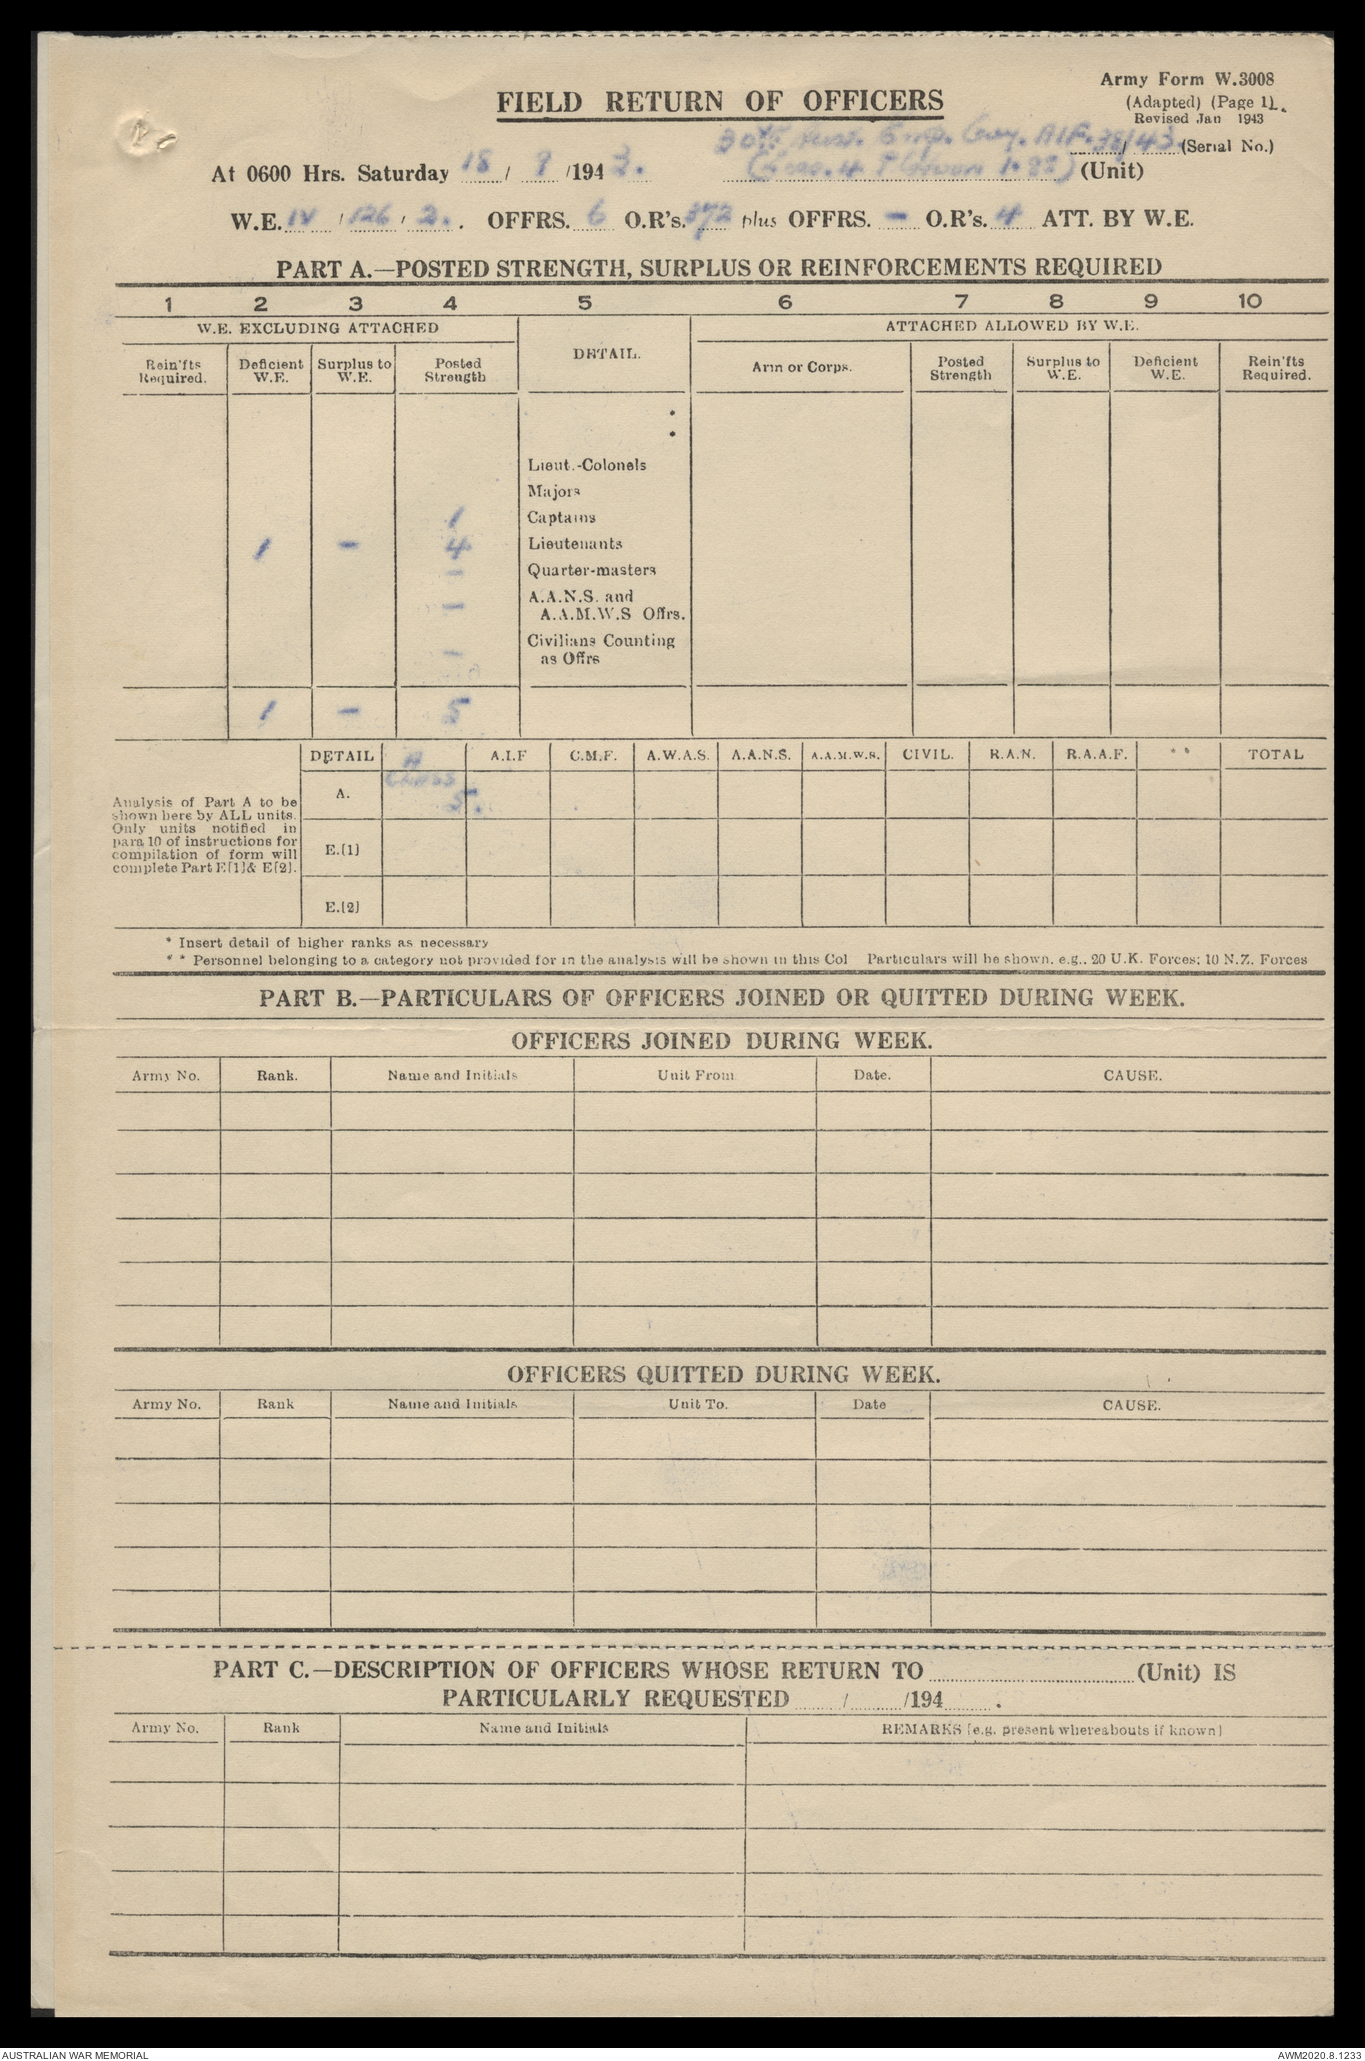 Army Form W.3008
FIELD RETURN OF OFFICERS
(Adapted) (Page 1).
Revised Jan 1943
30th Aust. Emp. Coy. AIF. 38/43. (Serial No.)
At 0600 Hrs. Saturday 18 / 9 /1943. (Less 4 Platoon 1-82) (Unit)
W.E. IV / 126 / 2. . OFFRS. 6 O.R's. 372 plus OFFRS. – O.R's. 4 ATT. BY W.E.
PART A.—POSTED STRENGTH, SURPLUS OR REINFORCEMENTS REQUIRED
1 2 3 4 5 6 7 8 9 10
W.E. EXCLUDING ATTACHED DETAIL. ATTACHED ALLOWED BY W.E.
Rein'fts Required. Deficient W.E. Surplus to W.E. Posted Strength Arm or Corps. Posted Strength Surplus to W.E. Deficient W.E. Rein'fts Required.
*
*
Lieut.-Colonels
Majors
1 Captains
1 – 4 Lieutenants
– Quarter-masters
– A.A.N.S. and
A.A.M.W.S Offrs.
– Civilians Counting
as Offrs
1 – 5
DETAIL A CLASS A.I.F C.M.F. A.W.A.S. A.A.N.S. A.A.M.W.S. CIVIL. R.A.N. R.A.A.F. * * TOTAL
A. 5.
Analysis of Part A to be
shown here by ALL units.
Only units notified in
para 10 of instructions for
compilation of form will
complete Part E[1]& E[2].
E.[1]
E.[2]
* Insert detail of higher ranks as necessary
* * Personnel belonging to a category not provided for in the analysis will be shown in this Col Particulars will be shown, e.g., 20 U.K. Forces; 10 N.Z. Forces
PART B.—PARTICULARS OF OFFICERS JOINED OR QUITTED DURING WEEK.
OFFICERS JOINED DURING WEEK.
Army No. Rank. Name and Initials Unit From Date. CAUSE.
OFFICERS QUITTED DURING WEEK.
Army No. Rank Name and Initials Unit To. Date CAUSE.
PART C.—DESCRIPTION OF OFFICERS WHOSE RETURN TO (Unit) IS
PARTICULARLY REQUESTED / /194 .
Army No. Rank Name and Initials REMARKS [e.g. present whereabouts if known]
AUSTRALIAN WAR MEMORIAL AWM2020.8.1233